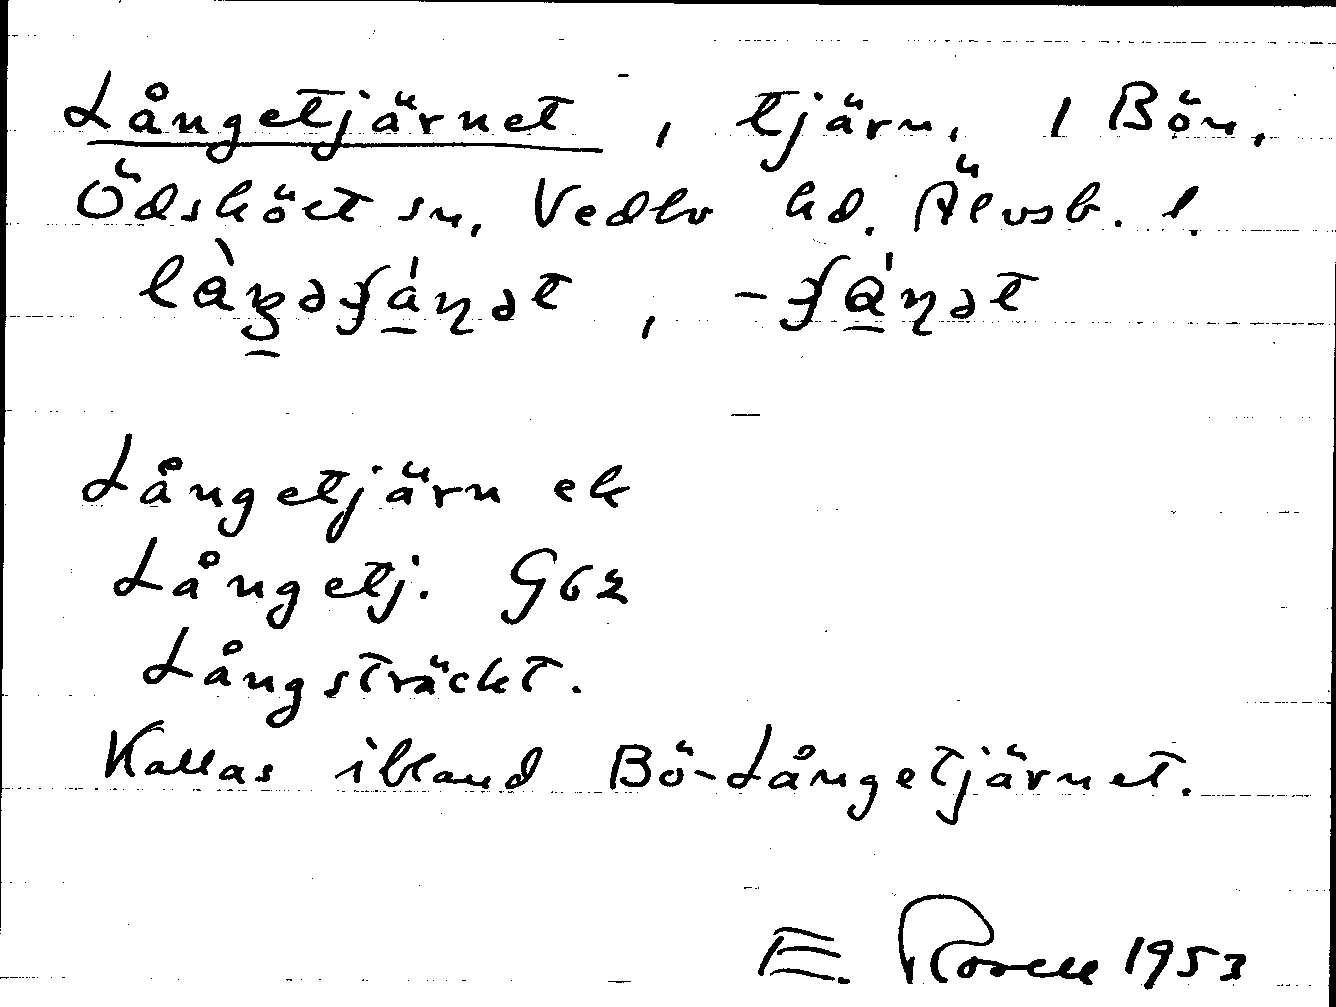 Långetjärnet, tjärn, 1 Bön,
Ödsköet sn, Vedbo hd. Älvsb. l.
Långetjärn ek
Långetj. G62
Långsträckt.
Kallas ibland Bö-Långetjärnet.
E. 1953